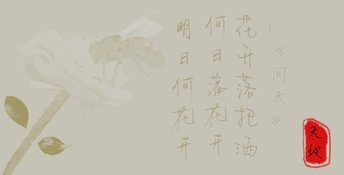 《问天》
花开落把酒
何日落花开
明日何花开
天悦